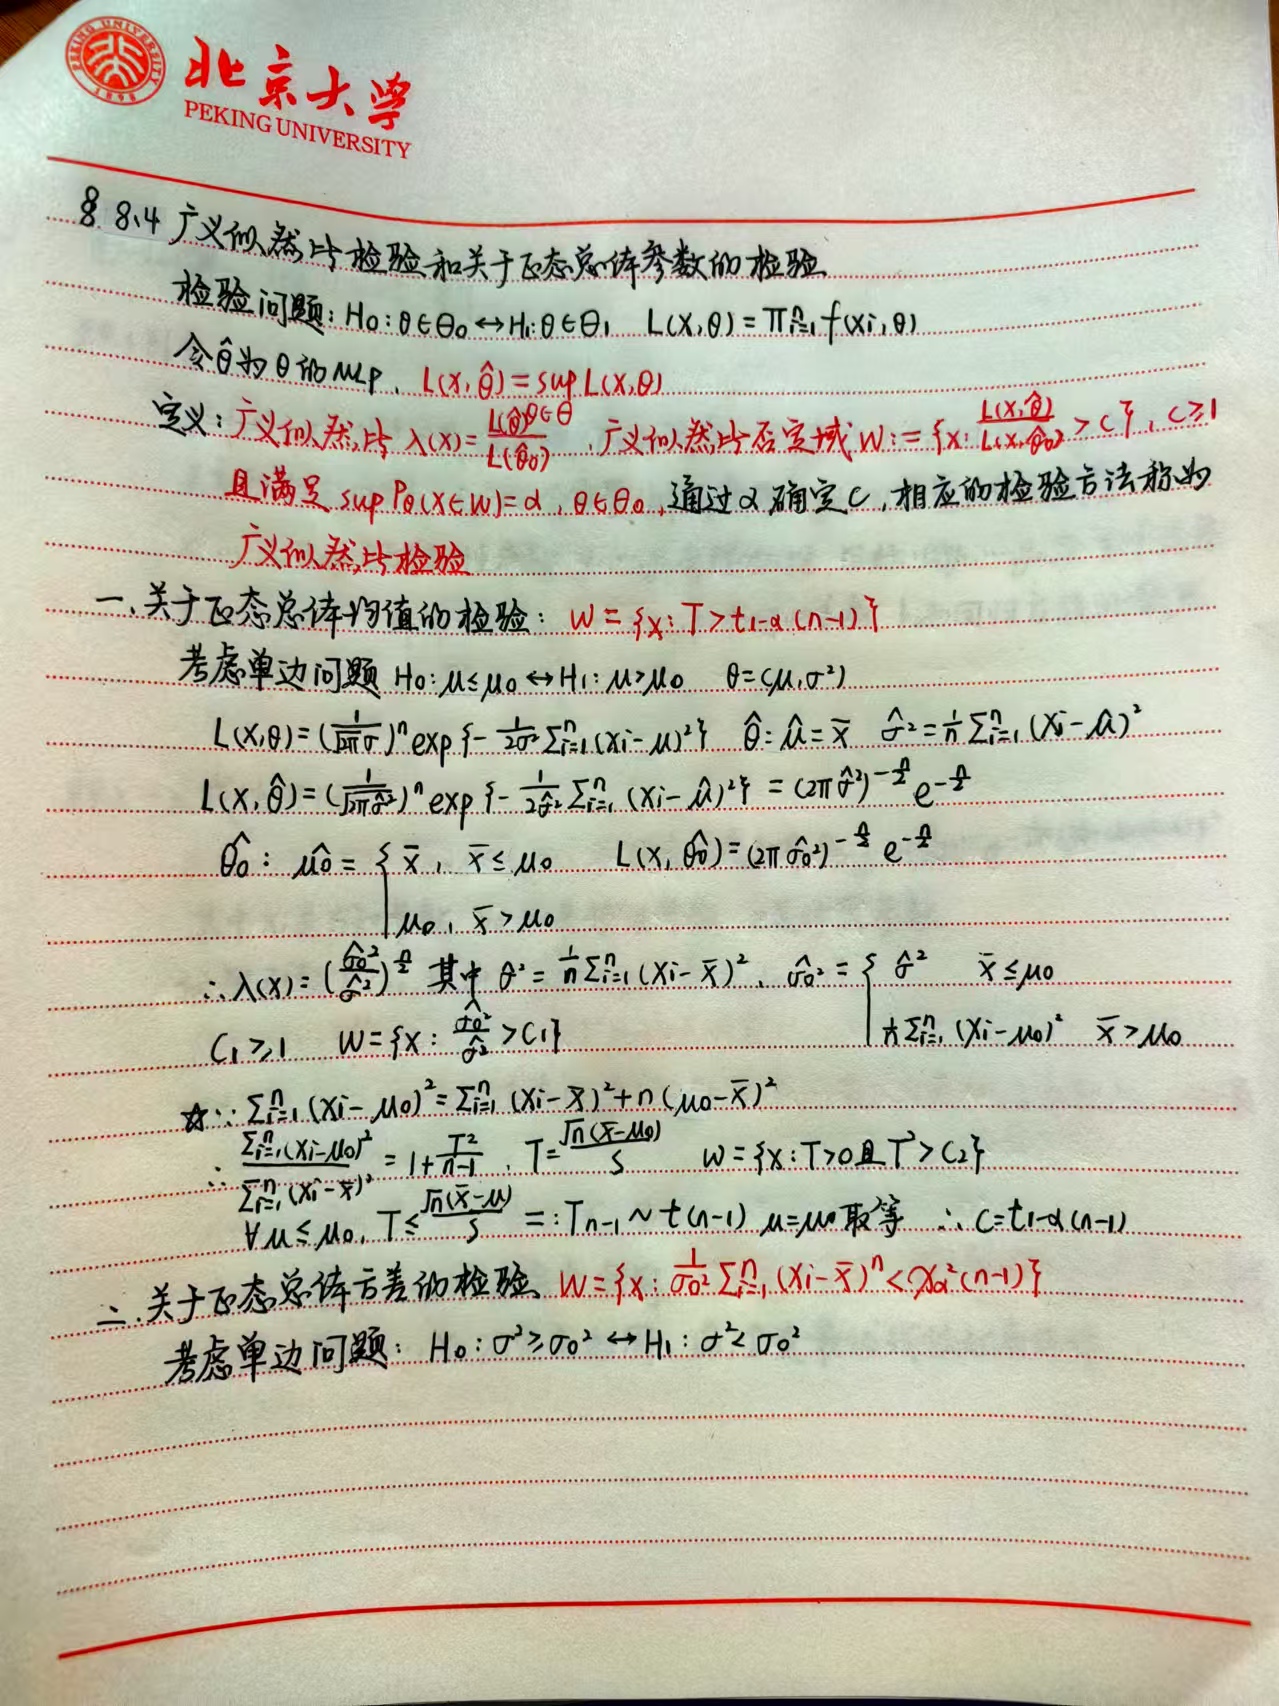 北京大学
PEKING UNIVERSITY
PEKING UNIVERSITY
1898
§ 8.4 广义似然比检验和关于正态总体参数的检验
检验问题: H₀: θ∈Θ₀ ↔ H₁: θ∈Θ₁ L(X,θ) = Πⁿᵢ₌₁ f(xi,θ)
令θ̂为θ的MLP. L(X,θ̂) = sup L(X,θ)
θ∈Θ
定义: 广义似然比 λ(x) = L(θ̂)/L(θ̂₀), 广义似然比否定域 W := {x: L(x,θ̂)/L(x,θ̂₀) > C}, C≥1
且满足 sup Pθ(X∈W) = α, θ∈Θ₀, 通过α确定C, 相应的检验方法称为
广义似然比检验
一. 关于正态总体均值的检验: W = {x: T > t₁₋α(n-1)}
考虑单边问题 H₀: μ≤μ₀ ↔ H₁: μ>μ₀ θ=(μ,σ²)
L(X,θ) = (1/√2πσ)ⁿ exp{-1/2σ² Σⁿᵢ₌₁(xi-μ)²} θ̂: μ̂ = x̄ σ̂² = 1/n Σⁿᵢ₌₁(Xi-μ̂)²
L(X,θ̂) = (1/√2πσ̂²)ⁿ exp{-1/2σ̂² Σⁿᵢ₌₁(xi-μ̂)²} = (2πσ̂²)^(-n/2) e^(-n/2)
θ̂₀: μ̂₀ = { x̄, x̄≤μ₀ L(X,θ̂₀) = (2πσ̂₀²)^(-n/2) e^(-n/2)
μ₀, x̄>μ₀
∴ λ(x) = (σ̂₀²/σ̂²)^(n/2) 其中 σ̂² = 1/n Σⁿᵢ₌₁(Xi-x̄)², σ̂₀² = { σ̂² x̄≤μ₀
C₁≥1 W={x: σ̂₀²/σ̂² > C₁} 1/n Σⁿᵢ₌₁(Xi-μ₀)² x̄>μ₀
☆∵ Σⁿᵢ₌₁(Xi-μ₀)² = Σⁿᵢ₌₁(Xi-x̄)² + n(μ₀-x̄)²
∵ Σⁿᵢ₌₁(Xi-μ₀)²/Σⁿᵢ₌₁(Xi-x̄)² = 1+T²/(n-1), T = √n(x̄-μ₀)/S W={x: T>0且T²>C₂}
∀μ≤μ₀, T≤√n(x̄-μ)/S =: Tn-1 ~ t(n-1) μ=μ₀取等 ∴ C=t₁₋α(n-1)
二. 关于正态总体方差的检验 W={x: 1/σ₀² Σⁿᵢ₌₁(Xi-x̄)ⁿ < χα²(n-1)}
考虑单边问题: H₀: σ²≥σ₀² ↔ H₁: σ²<σ₀²